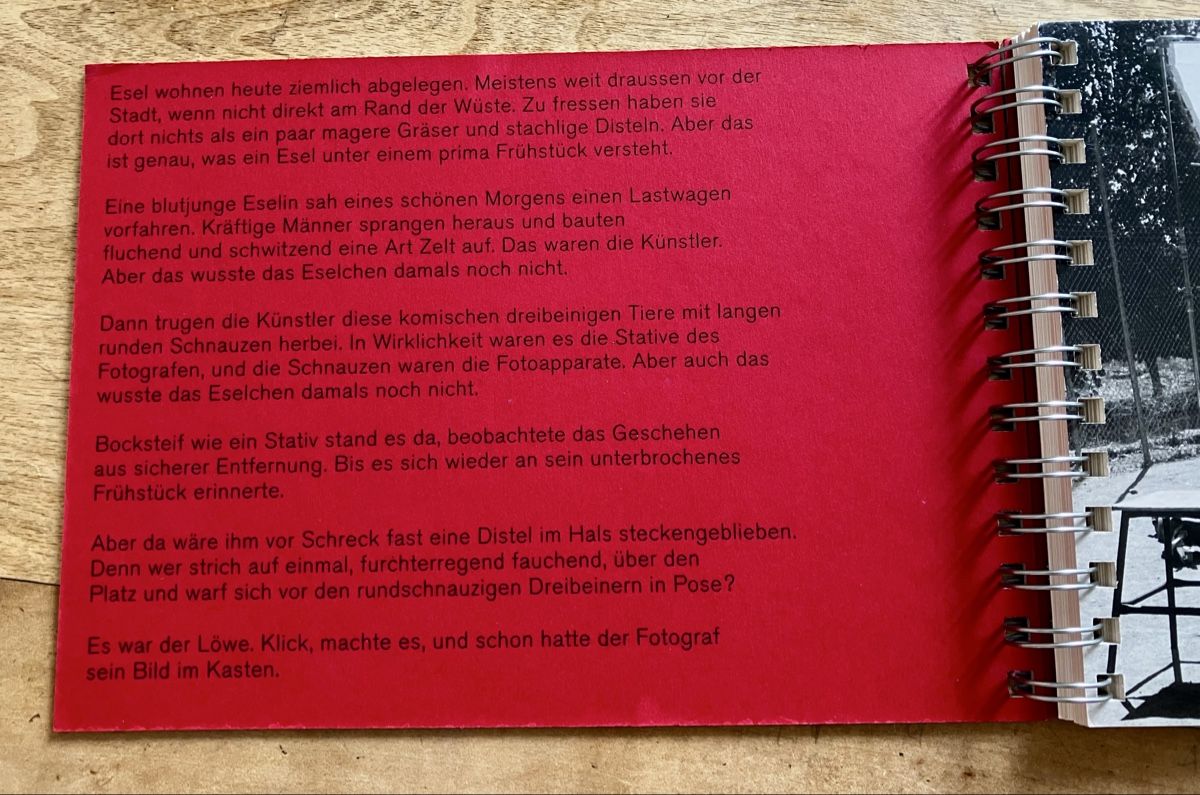 Esel wohnen heute ziemlich abgelegen. Meistens weit draussen vor der
Stadt, wenn nicht direkt am Rand der Wüste. Zu fressen haben sie
dort nichts als ein paar magere Gräser und stachlige Disteln. Aber das
ist genau, was ein Esel unter einem prima Frühstück versteht.
Eine blutjunge Eselin sah eines schönen Morgens einen Lastwagen
vorfahren. Kräftige Männer sprangen heraus und bauten
fluchend und schwitzend eine Art Zelt auf. Das waren die Künstler.
Aber das wusste das Eselchen damals noch nicht.
Dann trugen die Künstler diese komischen dreibeinigen Tiere mit langen
runden Schnauzen herbei. In Wirklichkeit waren es die Stative des
Fotografen, und die Schnauzen waren die Fotoapparate. Aber auch das
wusste das Eselchen damals noch nicht.
Bocksteif wie ein Stativ stand es da, beobachtete das Geschehen
aus sicherer Entfernung. Bis es sich wieder an sein unterbrochenes
Frühstück erinnerte.
Aber da wäre ihm vor Schreck fast eine Distel im Hals steckengeblieben.
Denn wer strich auf einmal, furchterregend fauchend, über den
Platz und warf sich vor den rundschnauzigen Dreibeinern in Pose?
Es war der Löwe. Klick, machte es, und schon hatte der Fotograf
sein Bild im Kasten.